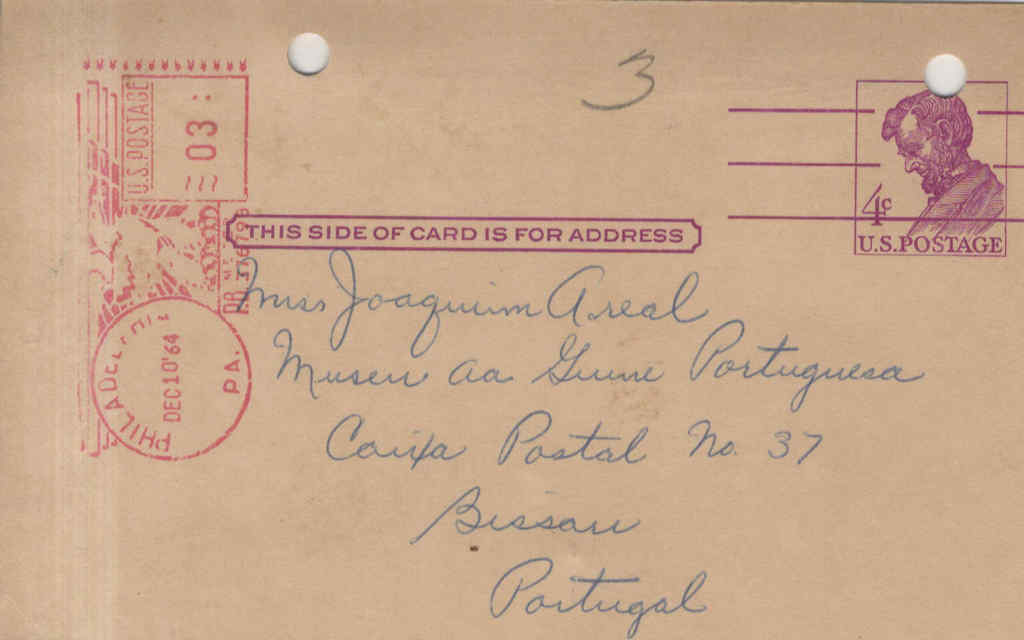 3
U.S. POSTAGE
03
4c
U.S. POSTAGE
THIS SIDE OF CARD IS FOR ADDRESS
PHILADEL
PA.
DEC 10 '64
Miss Joaquim Areal
Museu da Guine Portuguesa
Caixa Postal No. 37
Bissau
Portugal